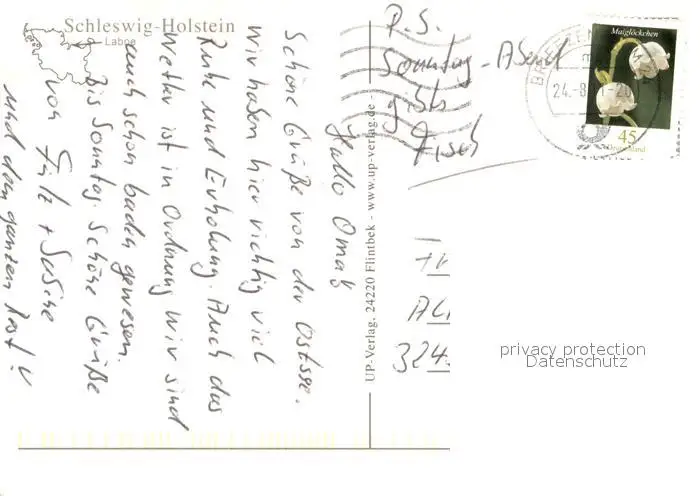 Schleswig-Holstein
Laboe
Hallo Oma!
Schöne Grüße von der Ostsee.
Wir haben hier richtig viel
Ruhe und Erholung. Auch das
Wetter ist in Ordnung wir sind
auch schon baden gewesen.
Bis Sonntag. Schöne Grüße
von + Sabine
und dem ganzen Rest!
UP-Verlag, 24220 Flintbek - www.up-verlag.de -
P.S.
Sonntag-Abend
gibts
Fisch
Maiglöckchen
45
Deutschland
BRIEFZEN
24.-8.
324
privacy protection
Datenschutz